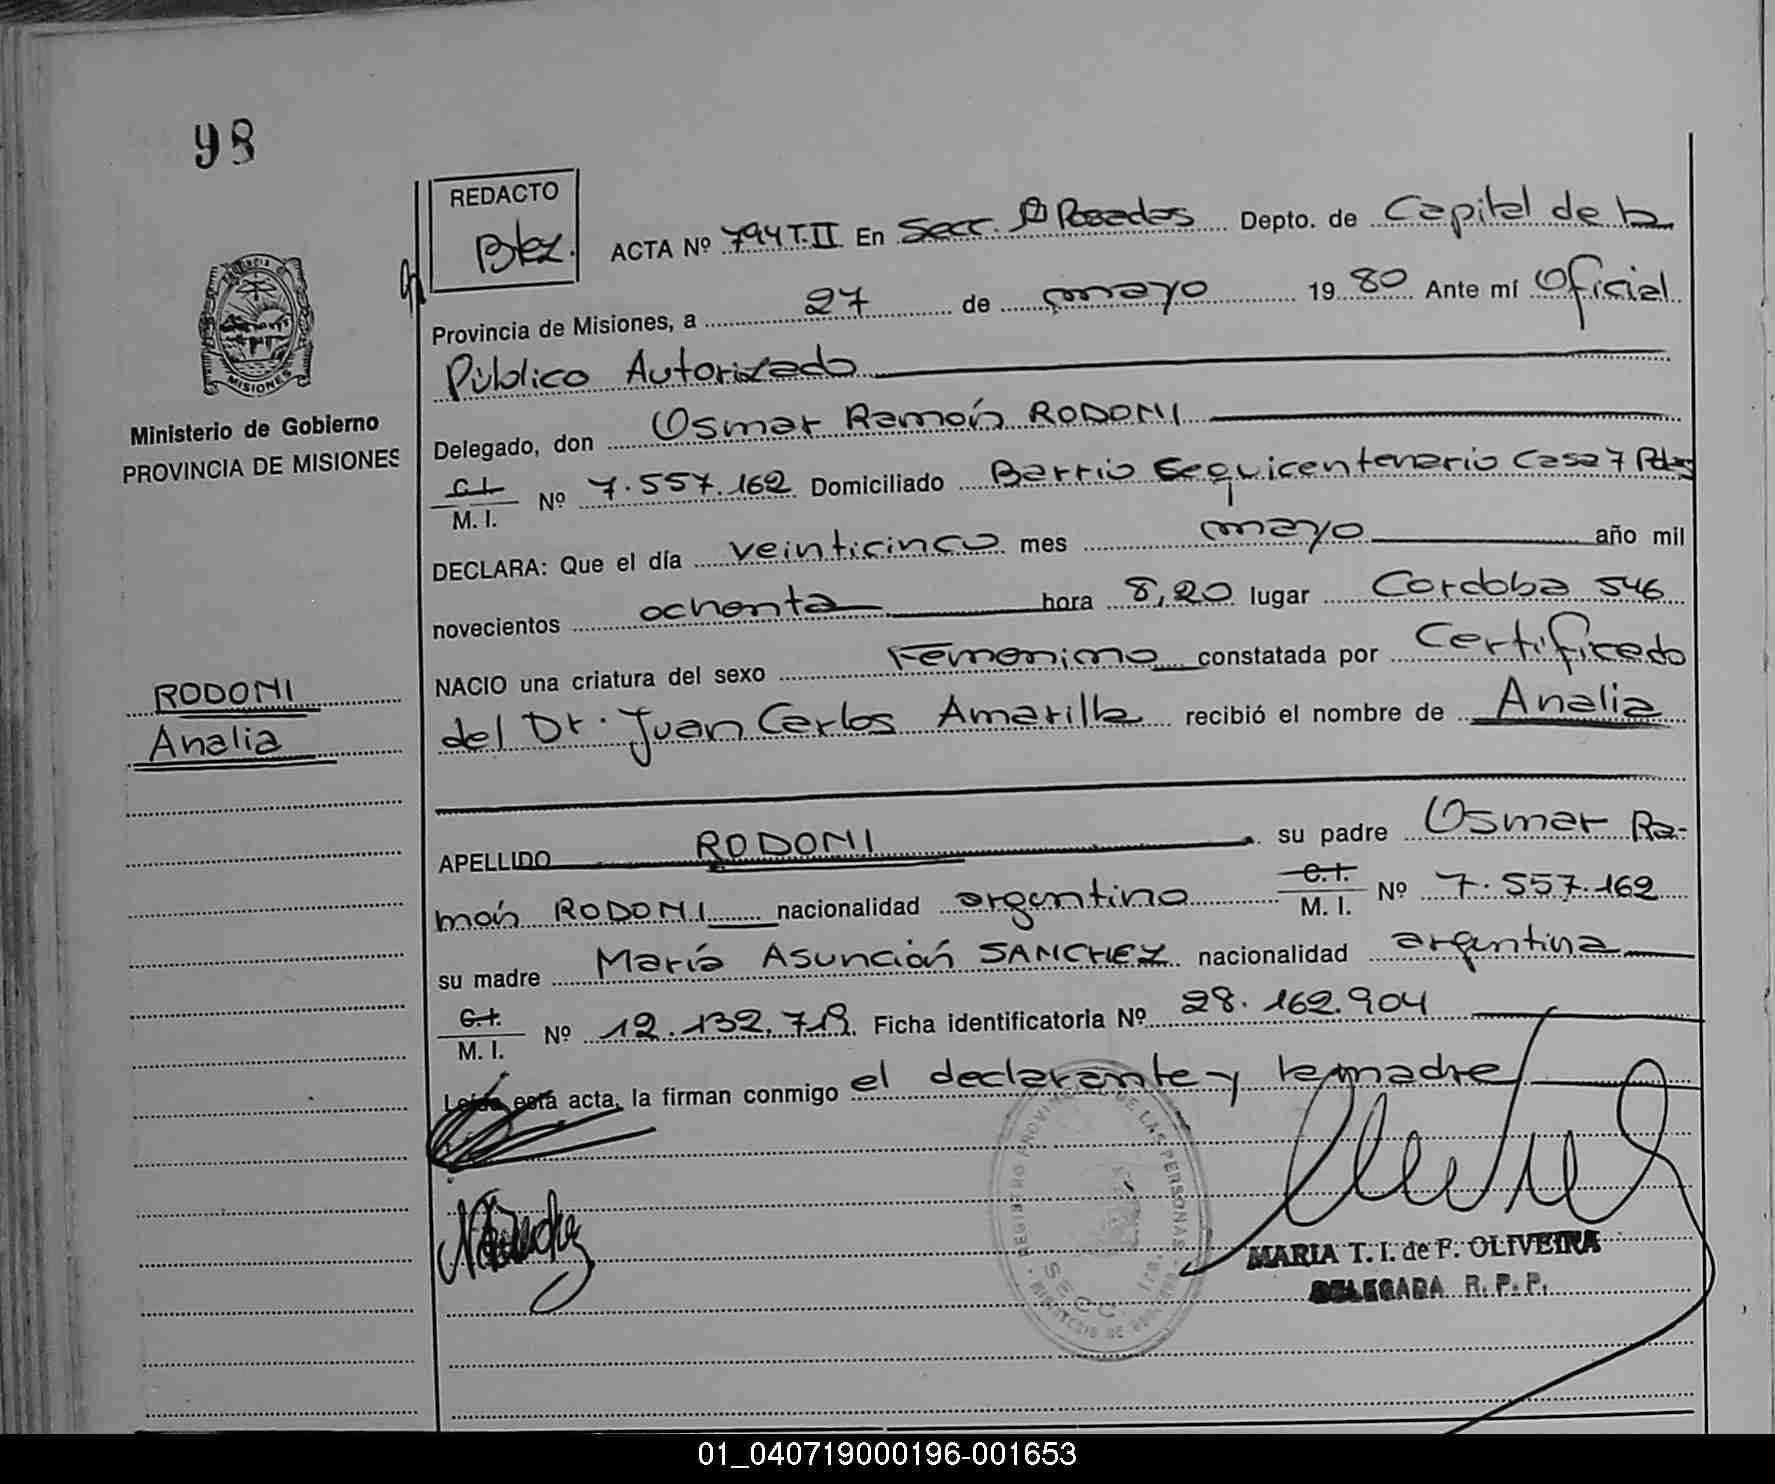 98
REDACTO
ACTA Nº 794 T.II En Secc. 1ª Posadas Depto. de Capital de la
Provincia de Misiones, a 27 de mayo 1980 Ante mí Oficial
Público Autorizado
Delegado, don Osmar Ramón RODONI
C.I. M. I. Nº 7.557.162 Domiciliado Barrio Sequicentenario Casa 7 Pdas
DECLARA: Que el día veinticinco mes mayo año mil
novecientos ochenta hora 8,20 lugar Cordoba 546
NACIO una criatura del sexo Femenino constatada por Certificado
del Dr. Juan Carlos Amarilla recibió el nombre de Analia
APELLIDO RODONI su padre Osmar Ra-
món RODONI nacionalidad argentino C.I. M. I. Nº 7.557.162
su madre María Asunción SANCHEZ nacionalidad argentina
C.I. M. I. Nº 12.132.719. Ficha identificatoria Nº 28.162.904
Leída esta acta, la firman conmigo el declarante y la madre
PROVINCIA
MISIONES
Ministerio de Gobierno
PROVINCIA DE MISIONES
RODONI
Analia
REGISTRO PROVINCIAL DE LAS PERSONAS
SECC. 1ra.
MINISTERIO DE GOBIERNO
MARIA T. I. de F. OLIVEIRA
DELEGADA R. P. P.
01_040719000196-001653